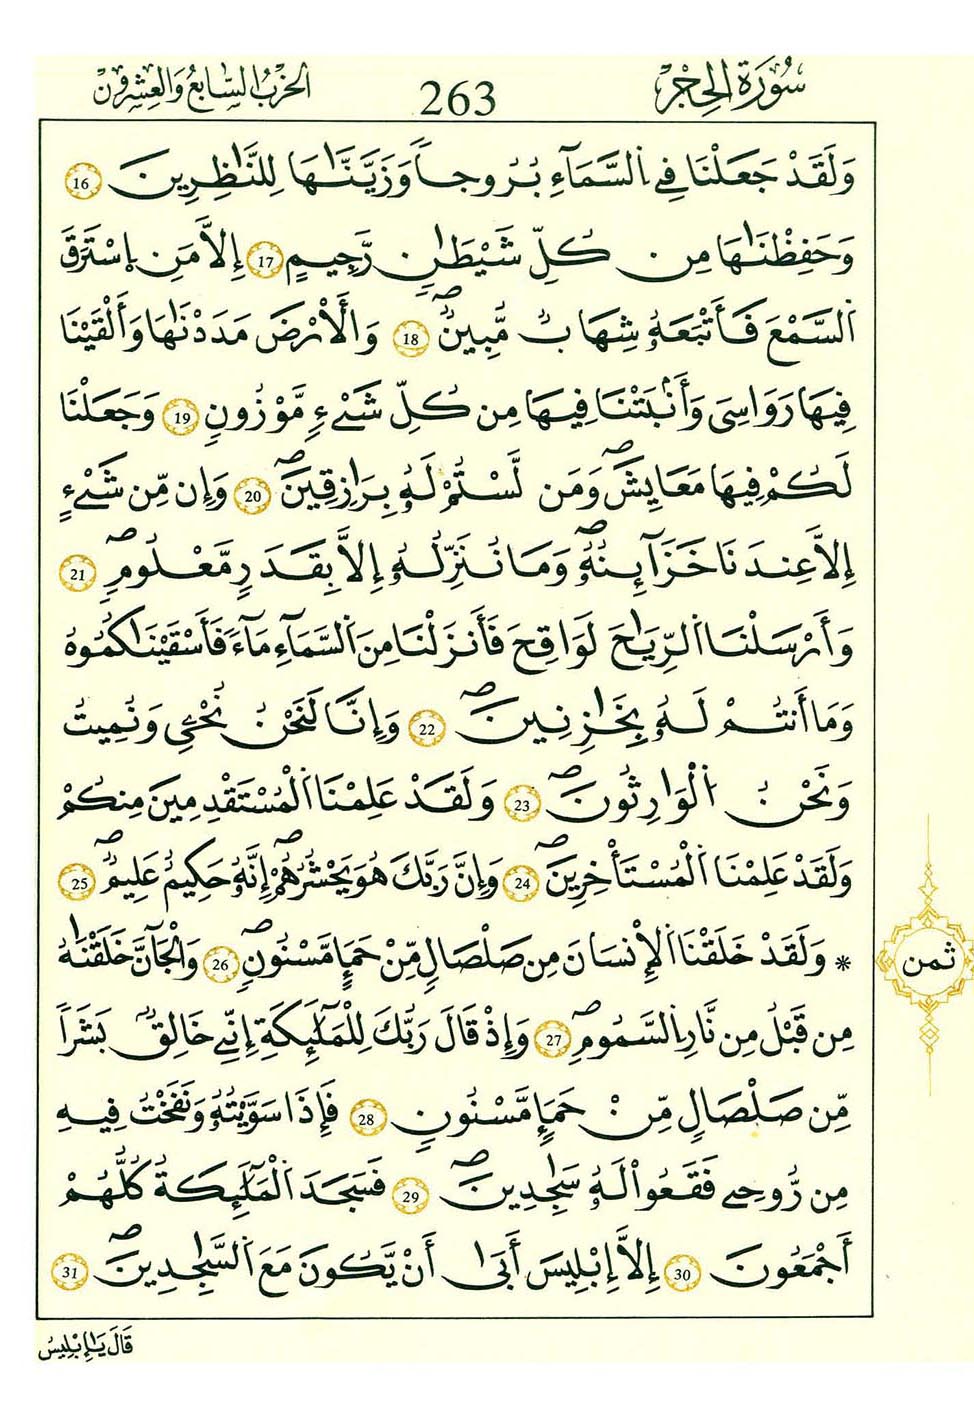 سُورَةُ الحِجْرِ
263
الحِزْبُ السَّابِعُ وَالعِشْرُونَ
وَلَقَدْ جَعَلْنَا فِے اِ۬لسَّمَآءِ بُرُوجاٗ وَزَيَّنَّٰهَا لِلنَّٰظِرِينَ 16
وَحَفِظْنَٰهَا مِن كُلِّ شَيْطَٰنٖ رَّجِيمٍ 17 اِلَّا مَنِ اِ۪سْتَرَقَ
اَ۬لسَّمْعَ فَأَتْبَعَهُۥ شِهَابٞ مُّبِينٞۖ 18 وَالْأَرْضَ مَدَدْنَٰهَا وَأَلْقَيْنَا
فِيهَا رَوَٰسِىَ وَأَنۢبَتْنَا فِيهَا مِن كُلِّ شَےْءٖ مَّوْزُونٖ 19 وَجَعَلْنَا
لَكُمْ فِيهَا مَعَٰيِشَۖ وَمَن لَّسْتُمْ لَهُۥ بِرَٰزِقِينَۖ 20 وَإِن مِّن شَےْءٍ
اِلَّا عِندَنَا خَزَآئِنُهُۥۖ وَمَا نُنَزِّلُهُۥٓ إِلَّا بِقَدَرٖ مَّعْلُومٖۖ 21
وَأَرْسَلْنَا اَ۬لرِّيَٰحَ لَوَٰقِحَ فَأَنزَلْنَا مِنَ اَ۬لسَّمَآءِ مَآءٗ فَأَسْقَيْنَٰكُمُوهُ
وَمَا أَنتُمْ لَهُۥ بِخَٰزِنِينَۖ 22 وَإِنَّا لَنَحْنُ نُحْيِۦ وَنُمِيتُ
وَنَحْنُ اُ۬لْوَٰرِثُونَۖ 23 وَلَقَدْ عَلِمْنَا اَ۬لْمُسْتَقْدِمِينَ مِنكُمْ
وَلَقَدْ عَلِمْنَا اَ۬لْمُسْتَأْخِرِينَۖ 24 وَإِنَّ رَبَّكَ هُوَ يَحْشُرُهُمُۥۖ إِنَّهُۥ حَكِيمٌ عَلِيمٞۖ 25
* وَلَقَدْ خَلَقْنَا اَ۬لْإِنسَٰنَ مِن صَلْصَٰلٖ مِّنْ حَمَإٖ مَّسْنُونٖۖ 26 وَالْجَآنَّ خَلَقْنَٰهُ
مِن قَبْلُ مِن نَّارِ اِ۬لسَّمُومِۖ 27 وَإِذْ قَالَ رَبُّكَ لِلْمَلَٰٓئِكَةِ إِنِّے خَٰلِقُۢ بَشَراٗ
مِّن صَلْصَٰلٖ مِّنْ حَمَإٖ مَّسْنُونٖ 28 فَإِذَا سَوَّيْتُهُۥ وَنَفَخْتُ فِيهِ
مِن رُّوحِے فَقَعُواْ لَهُۥ سَٰجِدِينَۖ 29 فَسَجَدَ اَ۬لْمَلَٰٓئِكَةُ كُلُّهُمْ
أَجْمَعُونَ 30 إِلَّا إِبْلِيسَ أَبَىٰٓ أَنْ يَّكُونَ مَعَ اَ۬لسَّٰجِدِينَۖ 31
ثمن
قَالَ يَٰإِبْلِيسُ